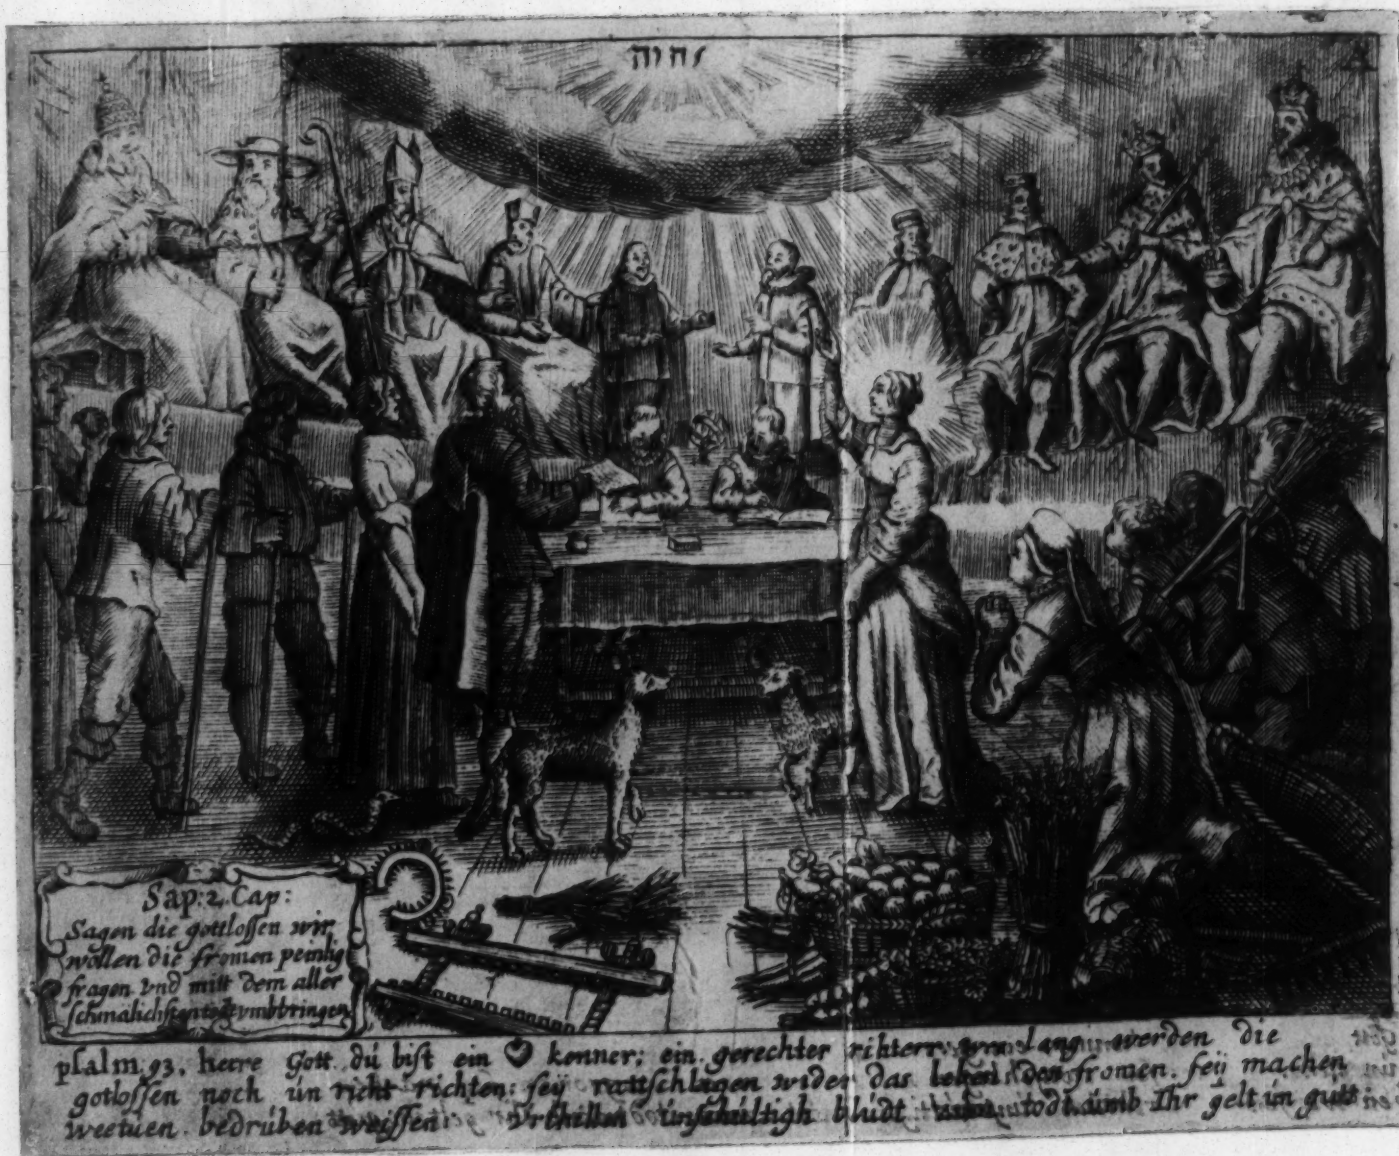 יהוה
A
Sap: 2. Cap:
Sagen die gottlossen wir
wöllen die fromen peinlig
fragen vnd mitt dem aller
schmalichsten todt vmbbringen
psalm. 93. herre Gott dú bist ein ♥ kenner; ein gerechter richterr: lang werden die
gotlossen noch ún richt richten: seÿ rattschlagen wider das leben des fromen. seÿ machen
weetuen. bedrúben weissen Vrthillen únschúltigh blúdt todt úmb Ihr gelt ún gútt